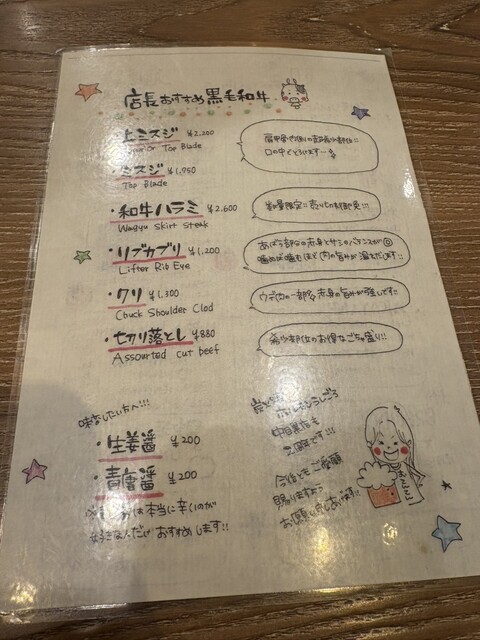 店長おすすめ黒毛和牛
・上ミスジ ¥2,200
Top Blade
・ミスジ ¥1,950
Top Blade
・和牛ハラミ ¥2,600
Wagyu Skirt Steak
数量限定に売り切れ御免!!!
・リブカブリ ¥1,200
Lifter Rib Eye
あばら部分の赤身とサシのバランスが◎
噛めば噛むほど肉の旨みが溢れだします!!
・クリ ¥1,300
Chuck Shoulder Clod
ウデ肉の一部多赤身の旨みが強いです!!
・切り落とし ¥880
Assourted cut beef
希少部位のお得なごちゃ盛り!!
味変したい方へ!!!
・生姜醤 ¥200
・青唐醤 ¥200
は本当に辛いのが
好きな人だけ おすすめします!!
中目黒店も
ご贔屓です!!!
今後ともご愛顧
賜りますよう
お願い致しあげます!!